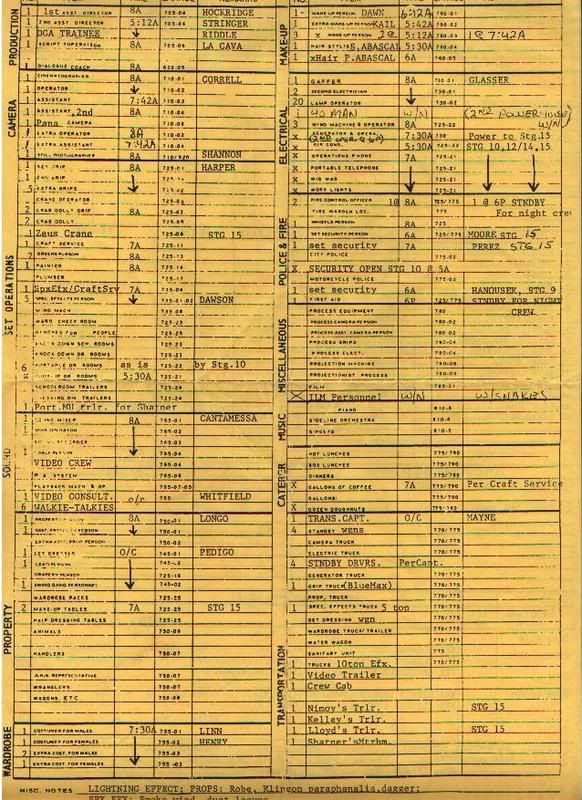 1 1st ASST. DIRECTOR 8A 705-03 HOCKRIDGE
1 2ND ASST. DIRECTOR 5:12A 705-04 STRINGER
1 DGA TRAINEE ↓ RIDDLE
1 SCRIPT SUPERVISOR 8A 705-06 LA CAVA
DIALOGUE COACH 8A
PRODUCTION
1 CINEMATOGRAPHER 8A 710-01 CORRELL
1 OPERATOR ↓ 710-02
1 ASSISTANT 7:42A 710-03
1 ASSISTANT,2nd 8A 710-03
Pana CAMERA
1 EXTRA OPERATOR 8A 710-02
1 EXTRA ASSISTANT 7:42A 710-03
1 STILL PHOTOGRAPHER 8A 710/920 SHANNON
CAMERA
1 KEY GRIP 8A 725-01 HARPER
1 2ND GRIP 725-02
5 EXTRA GRIPS ↓ 725-02
CRANE OPERATOR
2 CRAB DOLLY GRIP 8A 725-03
2 CRAB DOLLY
1 Zeus Crane STG 15
1 CRAFT SERVICE 7A 725-11
1 GREENSPERSON 8A 725-13
1 PAINTER 8A 725-14
PLUMBER
1 SpxEfx/CraftSrv 7A
5 SPEC. EFFECTS PERSON ↓ DAWSON
WIND MACH
WARD. CHECK ROOM
BENCHES FOR PEOPLE
KNOCK DOWN DR. ROOMS
6 PORTABLE DR. ROOMS as is 725-23 by Stg.10
5:30A
SCHOOLROOM TRAILERS
DRESSING RM TRAILERS
1 Port.MU Trlr. for Shatner
SET OPERATIONS
1 SOUND MIXER 8A 765-01 CANTAMESSA
765-02
765-03
1 CABLE PERSON ↓ 765-04
VIDEO CREW 765-04
P.A. SYSTEM 765-06
PLAYBACK MACH. & OP
1 VIDEO CONSULT. o/c 765 WHITFIELD
6 WALKIE-TALKIES
SOUND
1 PROPERTY 8A 750-01 LONGO
1 ASST. PROPERTY PERSON ↓ 750-02
EXTRA ASST. PROP PERSON 750-02
1 SET DRESSER O/C 745-01 PEDIGO
1 LEAD PERSON 745-02
DRAPERY PERSON 725-18
1 SWING GANG PERSONNEL ↓ 745-02
WARDROBE RACKS 725-25
2 MAKE-UP TABLES 7A 725-25 STG 15
HAIR DRESSING TABLES 725-25
ANIMALS 750-06
HANDLERS 750-07
A.H.A. REPRESENTATIVE 750-07
WRANGLERS 750-07
WAGONS, ETC 750-08
PROPERTY
1 COSTUMER FOR MALES 7:30A 755-01 LINN
1 COSTUMER FOR FEMALES 755-02 HENRY
2 EXTRA COST. FOR MALES 755-03
1 EXTRA COST. FOR FEMALES ↓ 755-03
WARDROBE
1 MAKE-UP PERSON DAWN 6:12A 760-01
1 EXTRA MAKE-UP PERSON KAIL 5:42A 760-02
3 X MAKE-UP PERSON 2@ 5:12A 760-03 1@ 7:42A
1 HAIR STYLIST S.ABASCAL 5:30A 760-04
1 xHair P.ABASCAL 6A 760-05
MAKE-UP
1 GAFFER 8A 730-01 GLASSER
2 SECOND ELECTRICIAN 730-02
20 LAMP OPERATOR ↓ 730-02
1 40 MAN W/N (2ND POWER HOUSE)
3 WIND MACHINES & OPERATOR 8A W/N
x GENERATOR & OPERA. 7:30A Power to Stg.15
x AIR COND. 5:30A STG 10,12/14,15
X OPERATIONS PHONE 7A
X PORTABLE TELEPHONE
X WIG WAG
X WORK LIGHTS ↓ ↓ ↓
ELECTRICAL
2 FIRE CONTROL OFFICER 1@ 8A 725/775 1 @ 6P STNDBY
FIRE WARDEN LOC. 775 For night crew
1 WHISTLE PERSON 8A
1 SET SECURITY PERSON 6A 725/775 MOORE STG 15
1 set security 7A PEREZ STG.15
CITY POLICE 775-02
X SECURITY OPEN STG 10 @ 5A
MOTORCYCLE POLICE 775-02
1 set security 6A HANOUSEK, STG 9
1 FIRST AID 6P STNDBY FOR NIGHT
CREW
POLICE & FIRE
PROCESS EQUIPMENT 780
PROCESS CAMERA PERSON 780-02
PROCESS ASST. CAMERA PERSON 780-02
PROCESS GRIPS 780-04
PROCESS ELECT. 780-04
PROJECTION MACHINE 780-05
PROJECTIONIST PROCESS 780-06
FILM 785-21
X ILM Personnel W/N W/SNAKES
MISCELLANEOUS
PIANO 810-6
SIDELINE ORCHESTRA 810-6
SINGERS 810-5
MUSIC
HOT LUNCHES 775/790
BOX LUNCHES 775/790
DINNERS 775/790
X GALLONS OF COFFEE 7A 775/790 Per Craft Service
GALLONS: 775/790
X DOZEN DOUGHNUTS 775/790
CATERER
1 TRANS.CAPT. O/C MAYNE
4 STANDBY wgns 770/775
CAMERA TRUCK 770/775
ELECTRIC TRUCK
4 STNDBY DRVRS. PerCapt.
GENERATOR TRUCK 770/775
1 GRIP TRUCK(BlueMax) 770/775
PROP. TRUCK 770/775
1 SPEC. EFFECTS TRUCK 5 ton 770/775
SET DRESSING wgn 770/775
WARDROBE TRUCK/TRAILER 770/775
WATER WAGON 770/775
SANITARY UNIT 775
1 TRUCKS 10ton Efx. 770/775
1 Video Trailer
1 Crew Cab
1 Nimoy's Trlr. STG 15
1 Kelley's Trlr.
1 Lloyd's Trlr. STG 15
1 Shatner'sMtrhm.
TRANSPORTATION
MISC. NOTES LIGHTNING EFFECT; PROPS: Robe, Klingon paraphanalia,dagger;
SPX EFX: Smoke,wind, dust,leaves